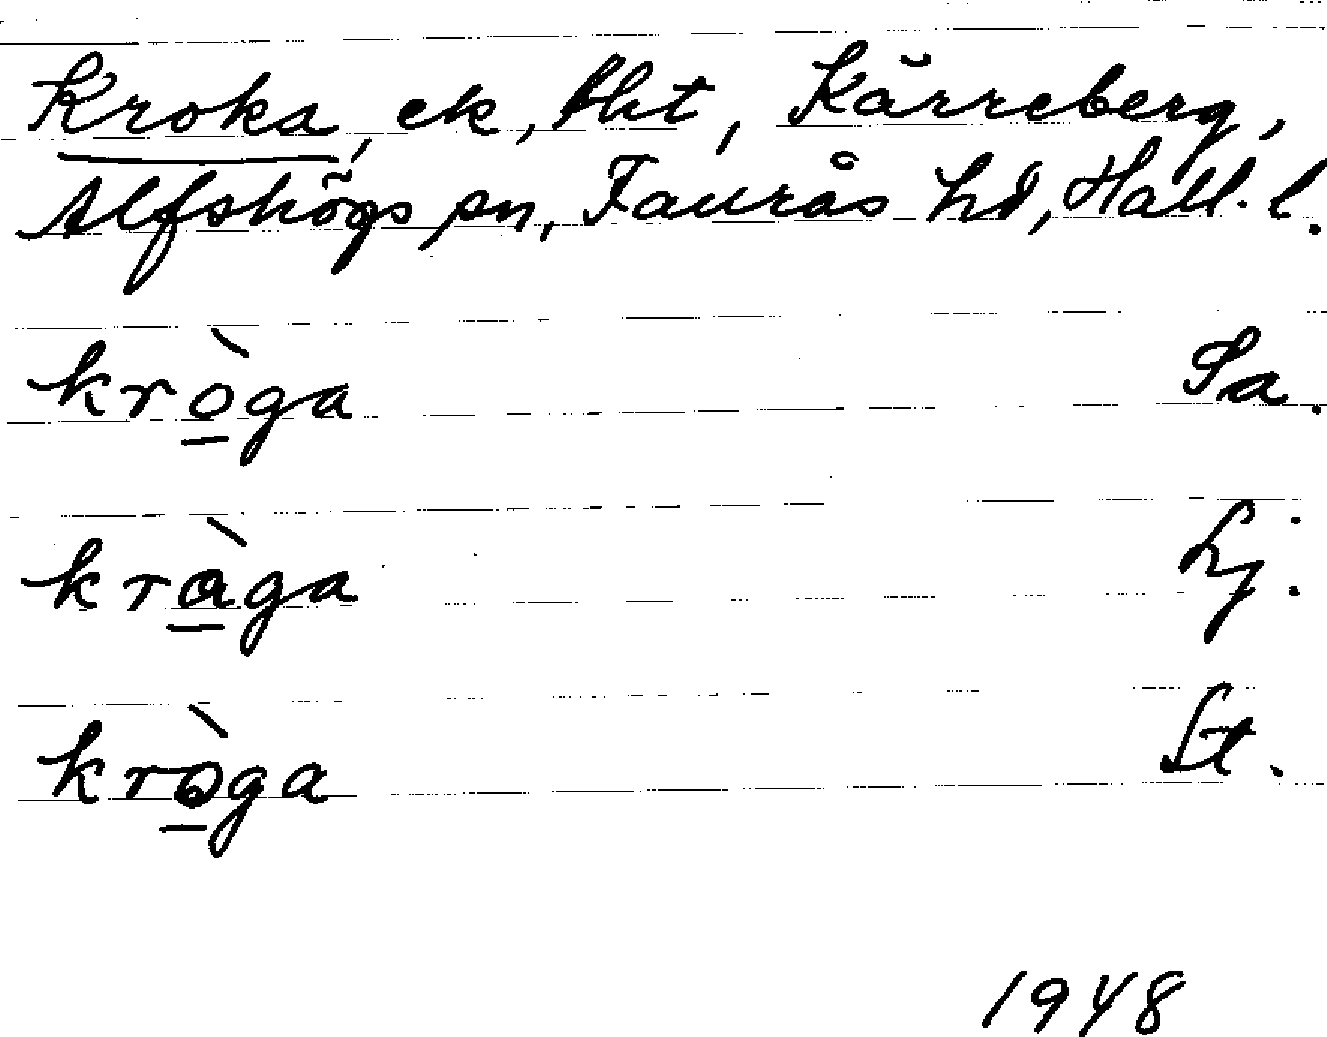 Kroka, ek, tkt, Kärreberg,
Alfshögs sn, Faurås hd, Hall. l.
kròga Sa.
kràga Lj.
kròga St.
1948